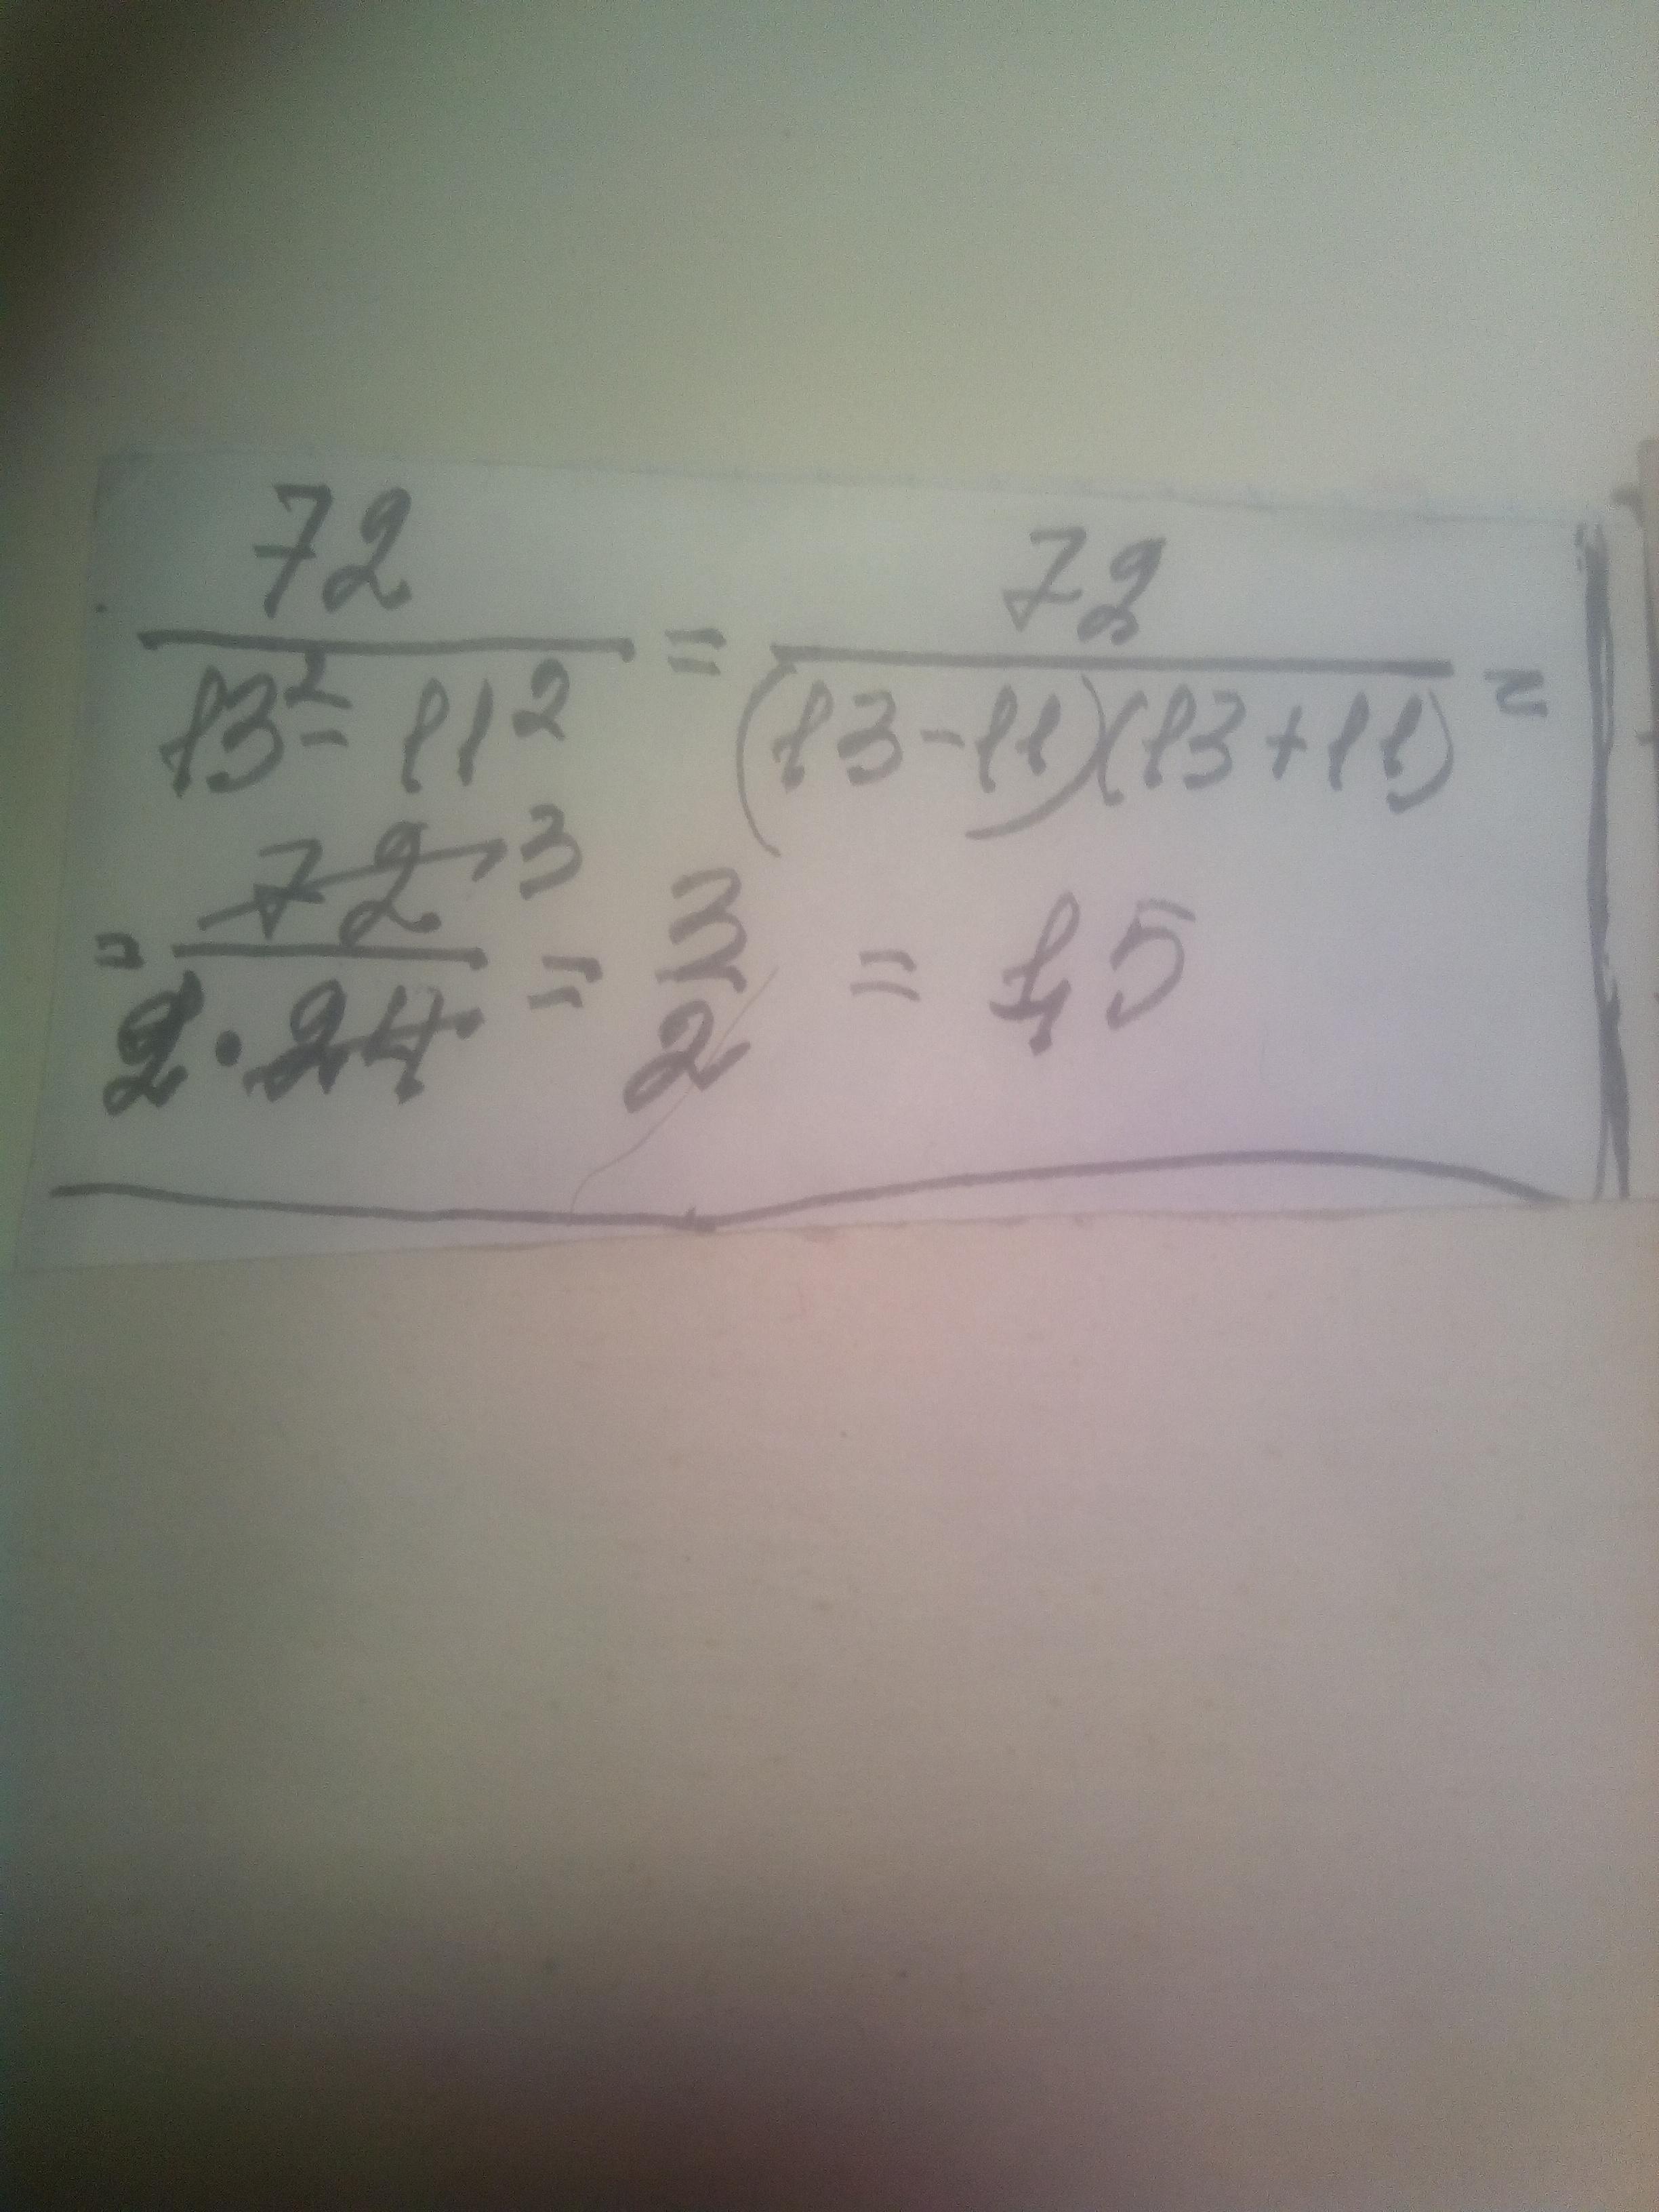 72/(13² - 11²) = 72/((13-11)(13+11)) =
= 72 3/(2·24) = 3/2 = 1,5